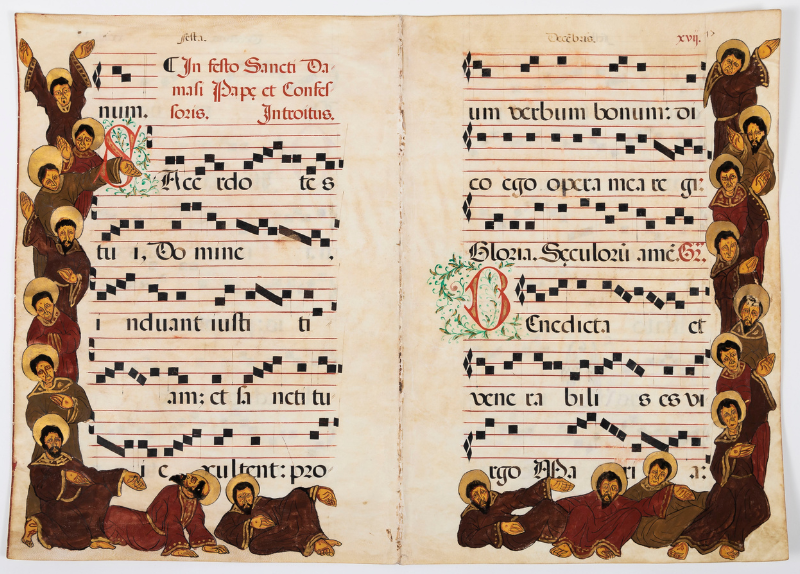 Festa.
In festo Sancti Da-
masi Papę et Confes
num. soris. Introitus.
SAce rdo te s
tu i, Do mine .
i nduant iusti ti
am: et sa ncti tu
i e xultent: pro
Decēbris. xvij.
um verbum bonum: di
co ego opera mea re gi:
Gloria. Sęculorū amē. Gr.
BEnedicta et
vene ra bili s es vi
rgo Ma ri a: